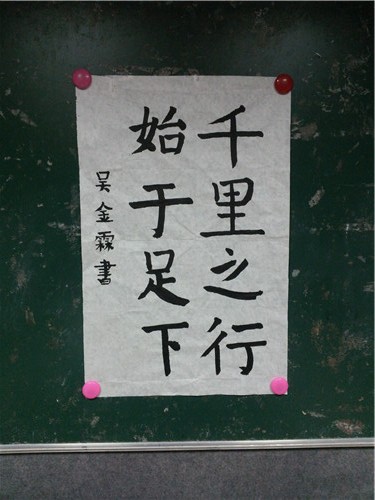 千里之行
始于足下
吴金霖書